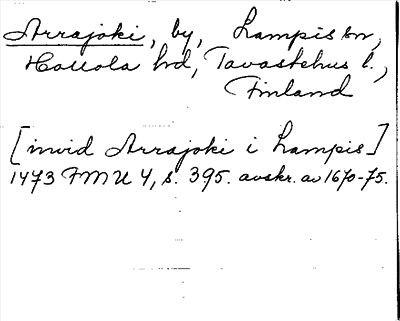 Arrajoki, by, Lampis sn,
Hollola hd, Tavastehus l.,
Finland
[invid Arrajoki i Lampis]
1473 FMU 4, s. 395. avskr. av 1670-75.